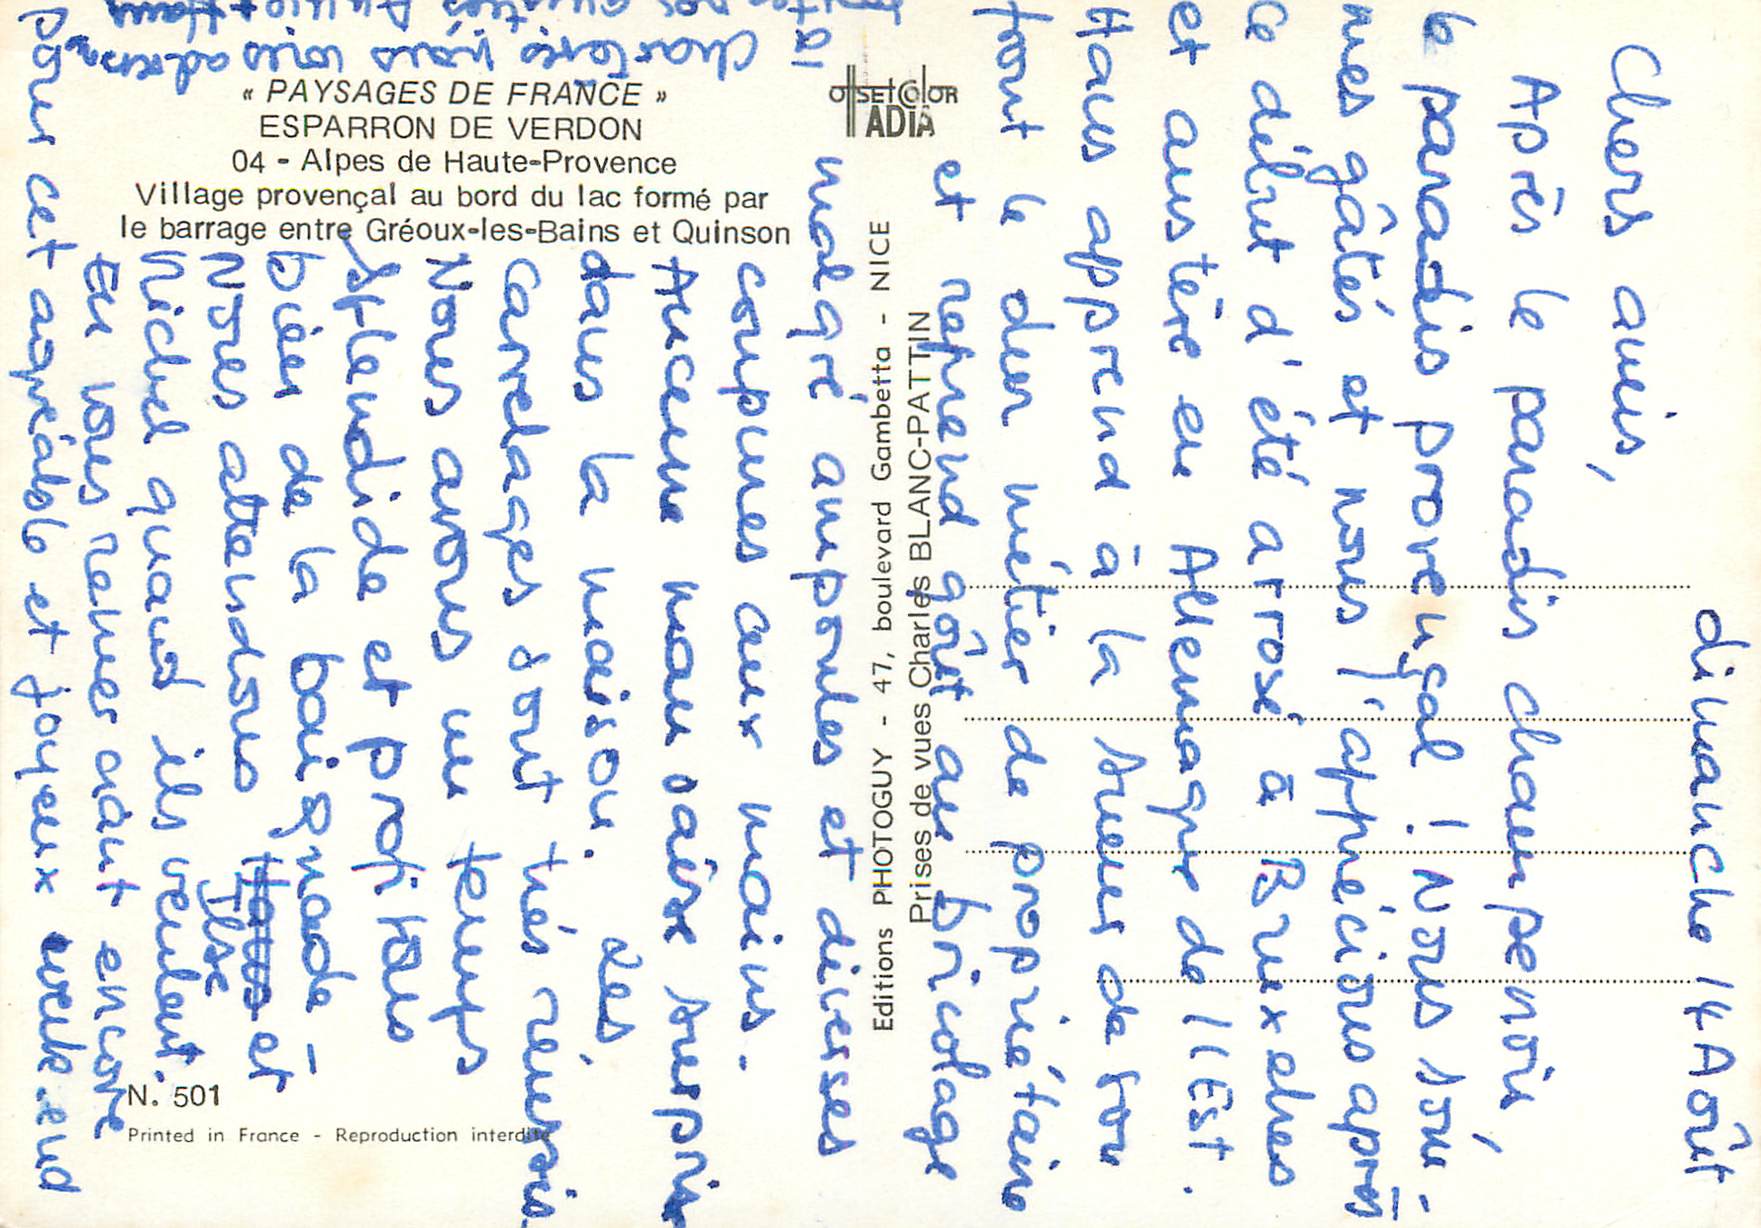 « PAYSAGES DE FRANCE »
ESPARRON DE VERDON
04 - Alpes de Haute-Provence
Village provençal au bord du lac formé par
le barrage entre Gréoux-les-Bains et Quinson
OFFSETCOLOR
ADIA
Editions PHOTOGUY - 47, boulevard Gambetta - NICE
Prises de vues Charles BLANC-PATTIN
N. 501
Printed in France - Reproduction interdite
dimanche 14 Août
Chers amis,
Après le paradis champenois,
le paradis provençal ! Nous som-
mes gâtés et nous l'apprécions après
ce début d'été arrosé à Bruxelles
et austère en Allemagne de l'Est.
Hans apprend à la sueur de son
front le dur métier de propriétaire
et reprend goût au bricolage
malgré ampoules et diverses
coupures aux mains.
Aucune mauvaise surprise
dans la maison. Les
carrelages sont très réussis.
Nous avons un temps
splendide et profitons
bien de la baignade -
Nous attendons Ilse et
Michel quand ils veulent.
En vous remerciant encore
pour cet agréable et joyeux week-end
à Charleris nous vous adressons
toutes nos amitiés Annie + Hans